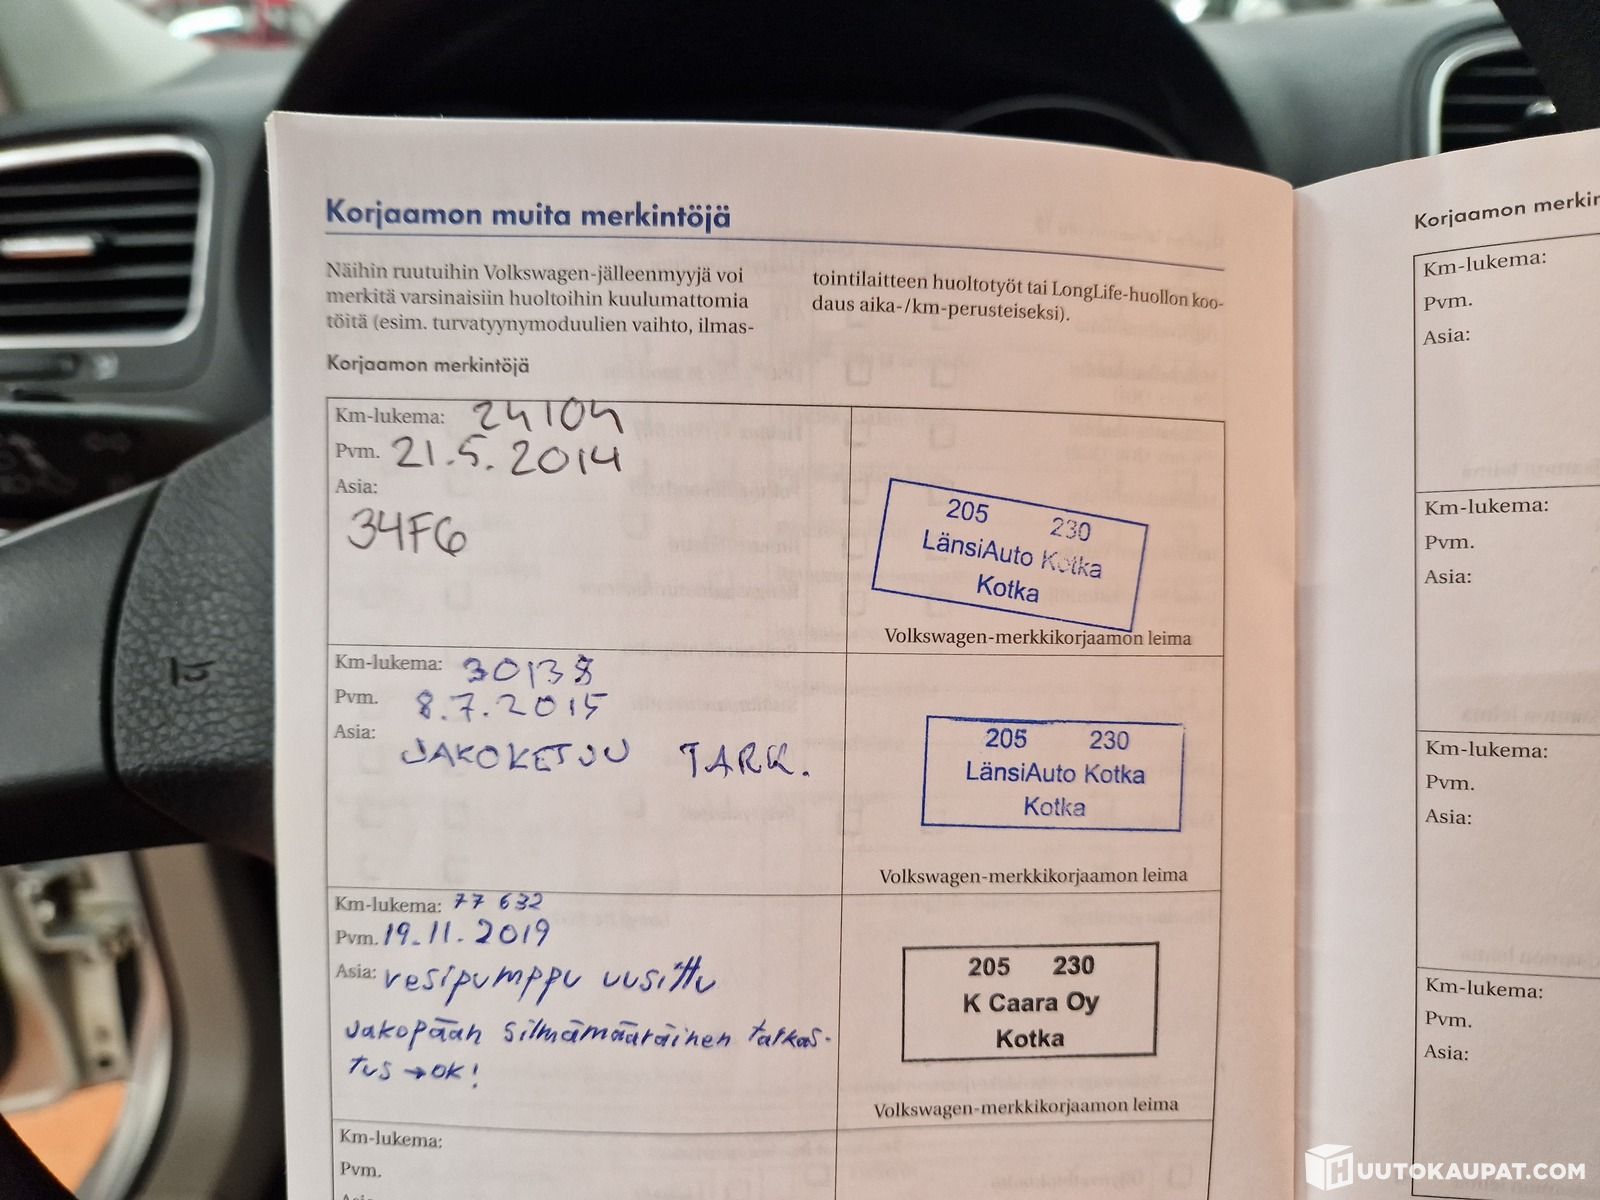 Korjaamon muita merkintöjä
Näihin ruutuihin Volkswagen-jälleenmyyjä voi
merkitä varsinaisiin huoltoihin kuulumattomia
töitä (esim. turvatyynymoduulien vaihto, ilmas-
tointilaitteen huoltotyöt tai LongLife-huollon koo-
daus aika-/km-perusteiseksi).
Korjaamon merkintöjä
Km-lukema: 24104
Pvm. 21.5.2014
Asia:
34F6
205 230
LänsiAuto Kotka
Kotka
Volkswagen-merkkikorjaamon leima
Km-lukema: 30138
Pvm. 8.7.2015
Asia:
JAKOKETJU TARK.
205 230
LänsiAuto Kotka
Kotka
Volkswagen-merkkikorjaamon leima
Km-lukema: 77 632
Pvm. 19.11.2019
Asia: vesipumppu uusittu
jakopään silmämääräinen tarkas-
tus → OK!
205 230
K Caara Oy
Kotka
Volkswagen-merkkikorjaamon leima
Km-lukema:
Pvm.
Korjaamon
Km-lukema:
Pvm.
Asia:
Km-lukema:
Pvm.
Asia:
Km-lukema:
Pvm.
Asia:
Km-lukema:
Pvm.
Asia:
HUUTOKAUPAT.COM